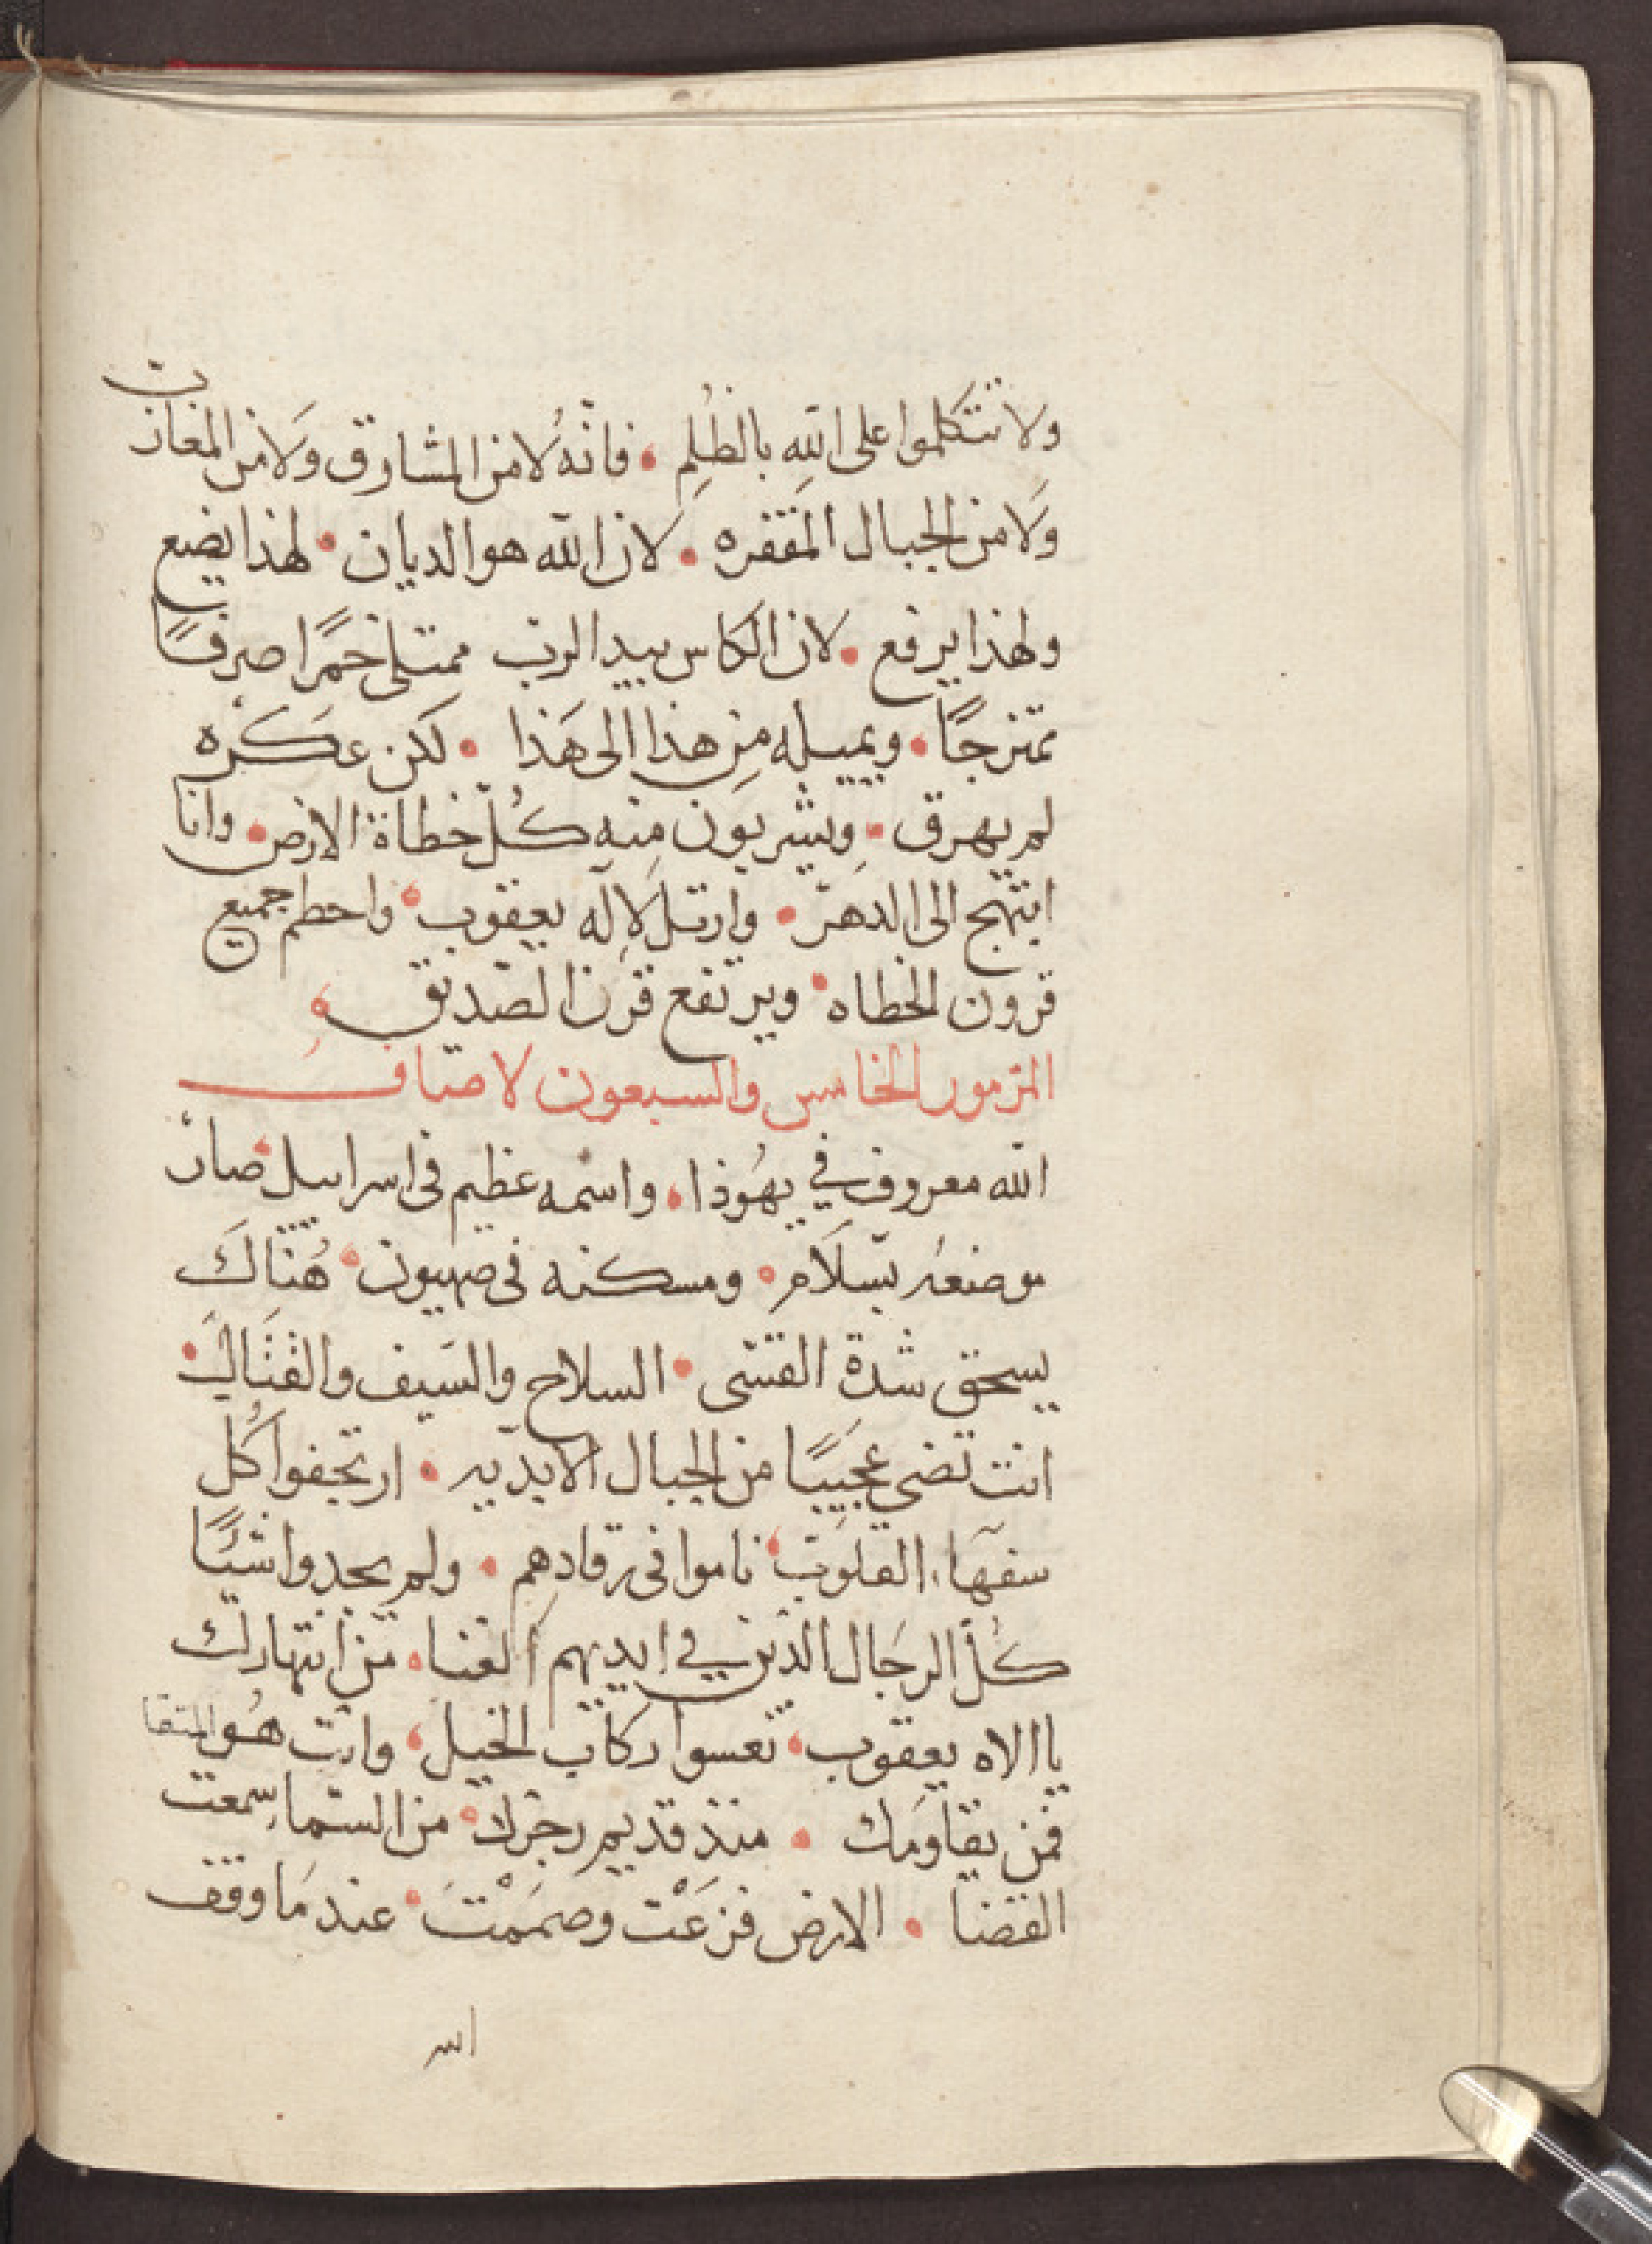 ولا تتكلموا على الله بالظُلمِ • فانّهُ لا من المشارق وَلا من المغارب
وَلا من الجبال المقفره • لان الله هو الديان • لهذا يضع
ولهذا يرفع • لان الكاس بيد الرب ممتلى خمرًا صرفًا
ممتزجًا • ويميله مِن هذا الى هَذا • لكن عَكَره
لم يهرق • ويشربون منه كُلّ خطاة الارض • وانا
ابتهج الى الدهر • وارتل لإله يعقوب • واحطم جميع
قرون الخطاه • ويرتفع قرن الصديق
المزمور الخامس والسبعون لاصاف
الله معروف في يهُوذا • واسمه عظيم في اسراييل • صار
موضعهُ بسَلَام • ومسكنه في صهيون • هُنَاكَ
يسحق شدة القسى • السلاح والسَيف والقتَال •
انت تضى عجيبًا من الجبال الابديه • ارتجفوا كُل
سفهَاء القلوب • ناموا في رقادهم • ولم يجدوا شيًا
كُلّ الرجَال الذين في ايديهم الغنا • من انتهارك
يا الاه يعقوب • نعسوا ركاب الخيل • وانت هُو المتقا
فمن يقاومك • منذ قديم رجزك • من السما سمعت
القضا • الارض فزعَت وصَمَمْتَ • عند مَا وقف
الله